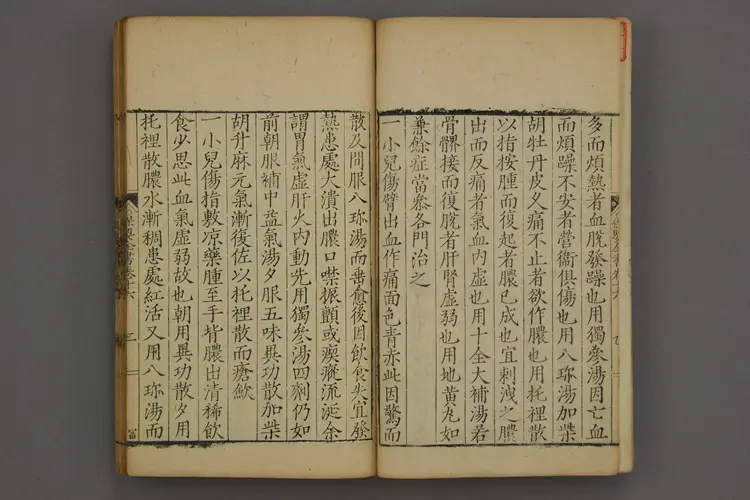 多而煩熱者血脫發躁也用獨參湯因亡血
而煩躁不安者營衛俱傷也用八珎湯加柴
胡牡丹皮夕痛不止者欲作膿也用托裡散
以指按腫而復起者膿已成也宜刺洩之膿
出而反痛者氣血内虛也用十全大補湯若
骨髎接而復脫者肝腎虛弱也用地黃丸如
兼餘症當叅各門治之
一小兒傷臂出血作痛面色青赤此因驚而
散及間服八珎湯而痊愈後因飲食失宜發
熱患處大潰出膿口噤振顫或瘈瘲流涎余
謂胃氣虛肝火内動先用獨參湯四劑仍如
前朝服補中益氣湯夕服五味異功散加柴
胡升麻元氣漸復佐以托裡散而瘡歛
一小兒傷指敷凉藥腫至手背膿出清稀飲
食少思此血氣虛弱故也朝用異功散夕用
托裡散膿水漸稠患處紅活又用八珎湯而